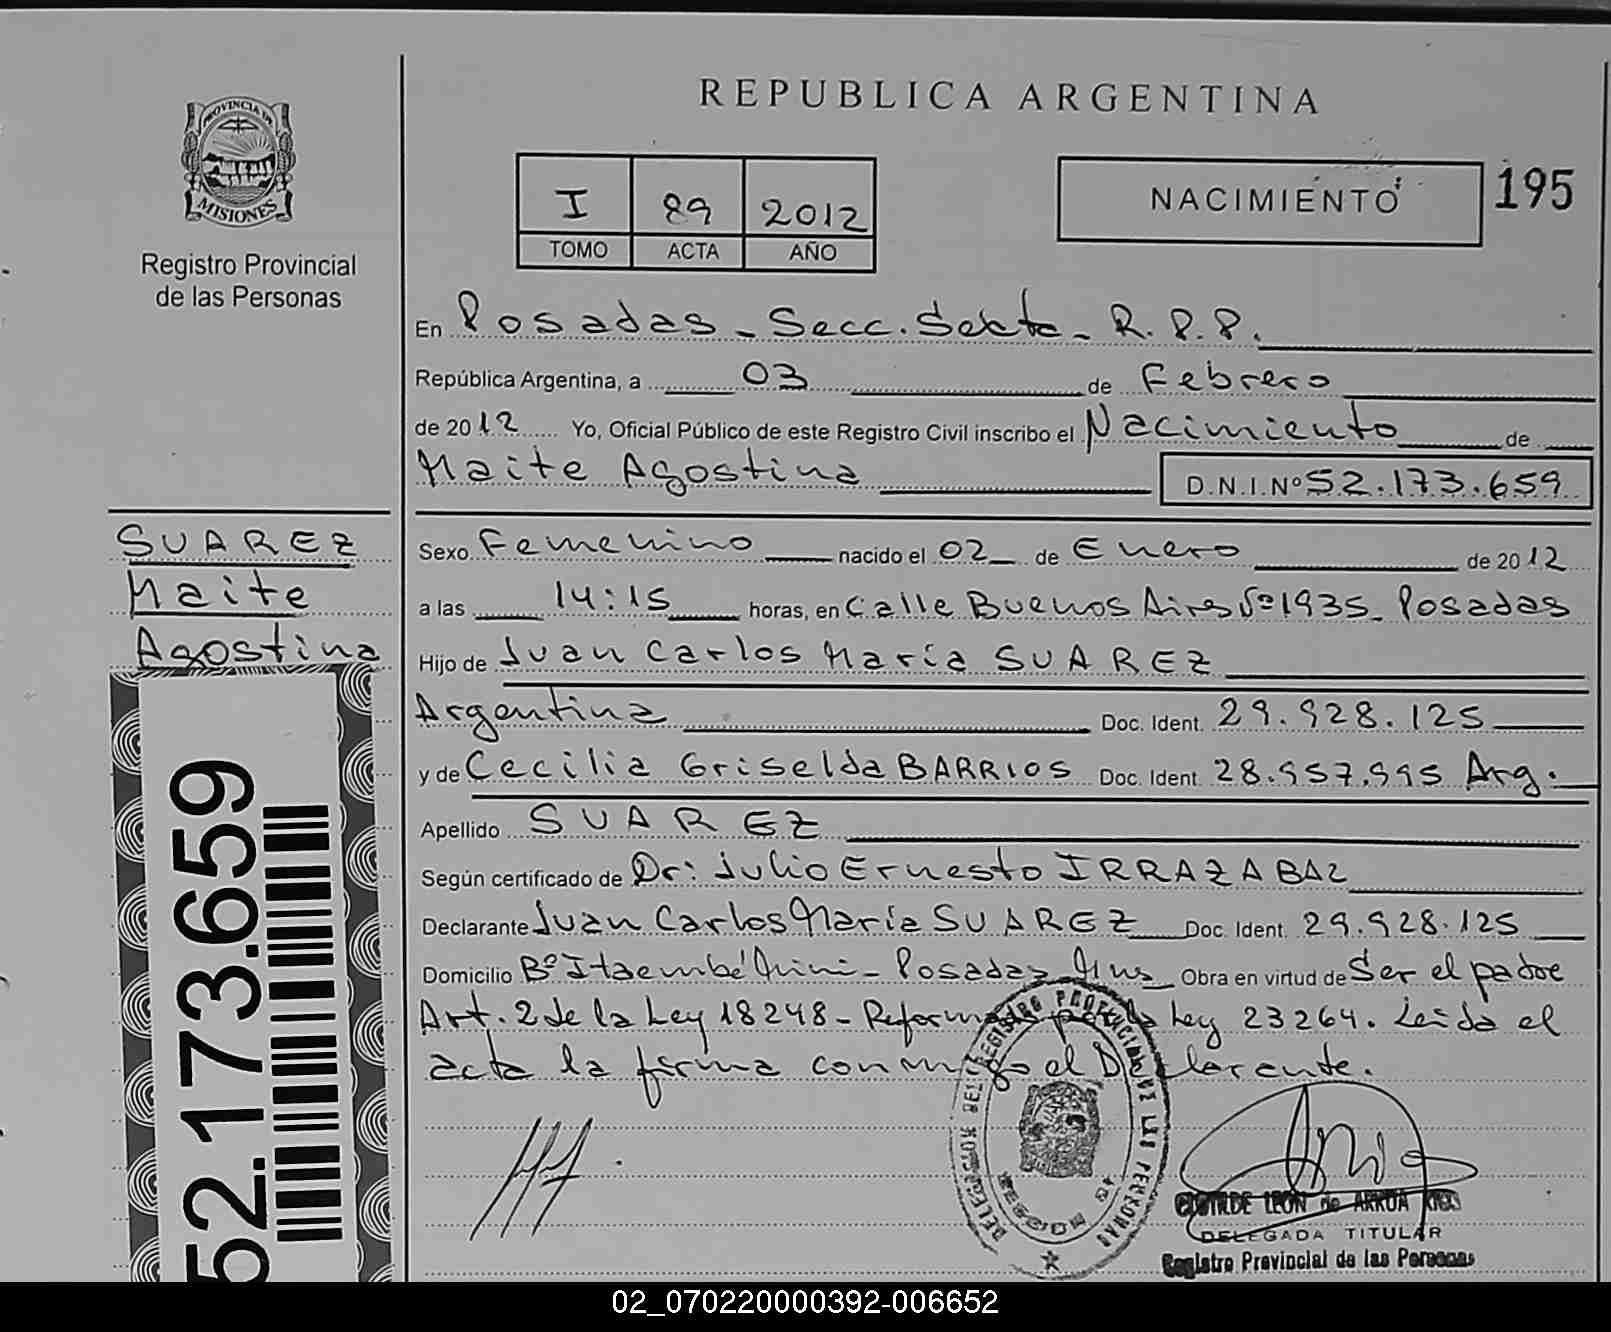 PROVINCIA DE
MISIONES
Registro Provincial
de las Personas
REPUBLICA ARGENTINA
I 89 2012
TOMO ACTA AÑO
NACIMIENTO
195
En Posadas - Secc. Sexta - R.P.P.
República Argentina, a 03 de Febrero
de 2012 Yo, Oficial Público de este Registro Civil inscribo el Nacimiento de
Maite Agostina D.N.I.Nº 52.173.659
SUAREZ
Maite
Agostina
52.173.659
Sexo Femenino nacido el 02 de Enero de 2012
a las 14:15 horas, en Calle Buenos Aires Nº 1935 - Posadas
Hijo de Juan Carlos María SUAREZ
Argentina Doc. Ident. 29.928.125
y de Cecilia Griselda BARRIOS Doc. Ident. 28.957.995 Arg.
Apellido SUAREZ
Según certificado de Dr: Julio Ernesto IRRAZABAL
Declarante Juan Carlos María SUAREZ Doc. Ident. 29.928.125
Domicilio Bº Itaembé Mini - Posadas Mns Obra en virtud de Ser el padre
Art. 2 de la Ley 18248 - Reformado por la Ley 23264. Leída el
acta la firma conmigo el Declarante.
CLOTILDE LEON de ARRUA
DELEGADA TITULAR
Registro Provincial de las Personas
02_070220000392-006652